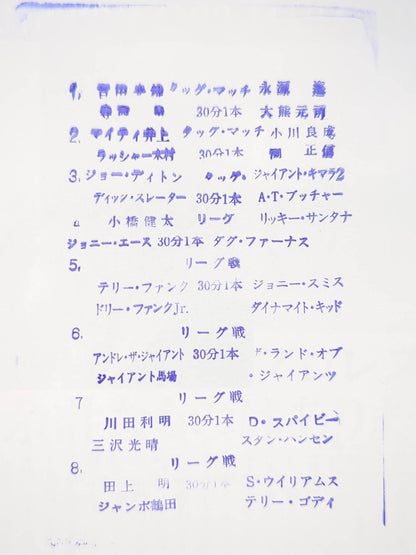 1, タッグ・マッチ 永源 遙
30分1本 大熊元司
2. マイティ井上 タッグ・マッチ 小川良成
ラッシャー木村 30分1本 渕 正信
3. ジョー・ディトン タッグ・ ジャイアント・キマラ2
ディック・スレーター 30分1本 A・T・ブッチャー
小橋健太 リーグ リッキー・サンタナ
ジョニー・エース 30分1本 ダグ・ファーナス
5. リーグ戦
テリー・ファンク 30分1本 ジョニー・スミス
ドリー・ファンクJr. ダイナマイト・キッド
6. リーグ戦
アンドレ・ザ・ジャイアント 30分1本 ド・ランド・オブ
ジャイアント馬場 ・ジャイアンツ
7 リーグ戦
川田利明 30分1本 D・スパイビー
三沢光晴 スタン・ハンセン
8. リーグ戦
田上 明 30分1本 S・ウイリアムス
ジャンボ鶴田 テリー・ゴディ